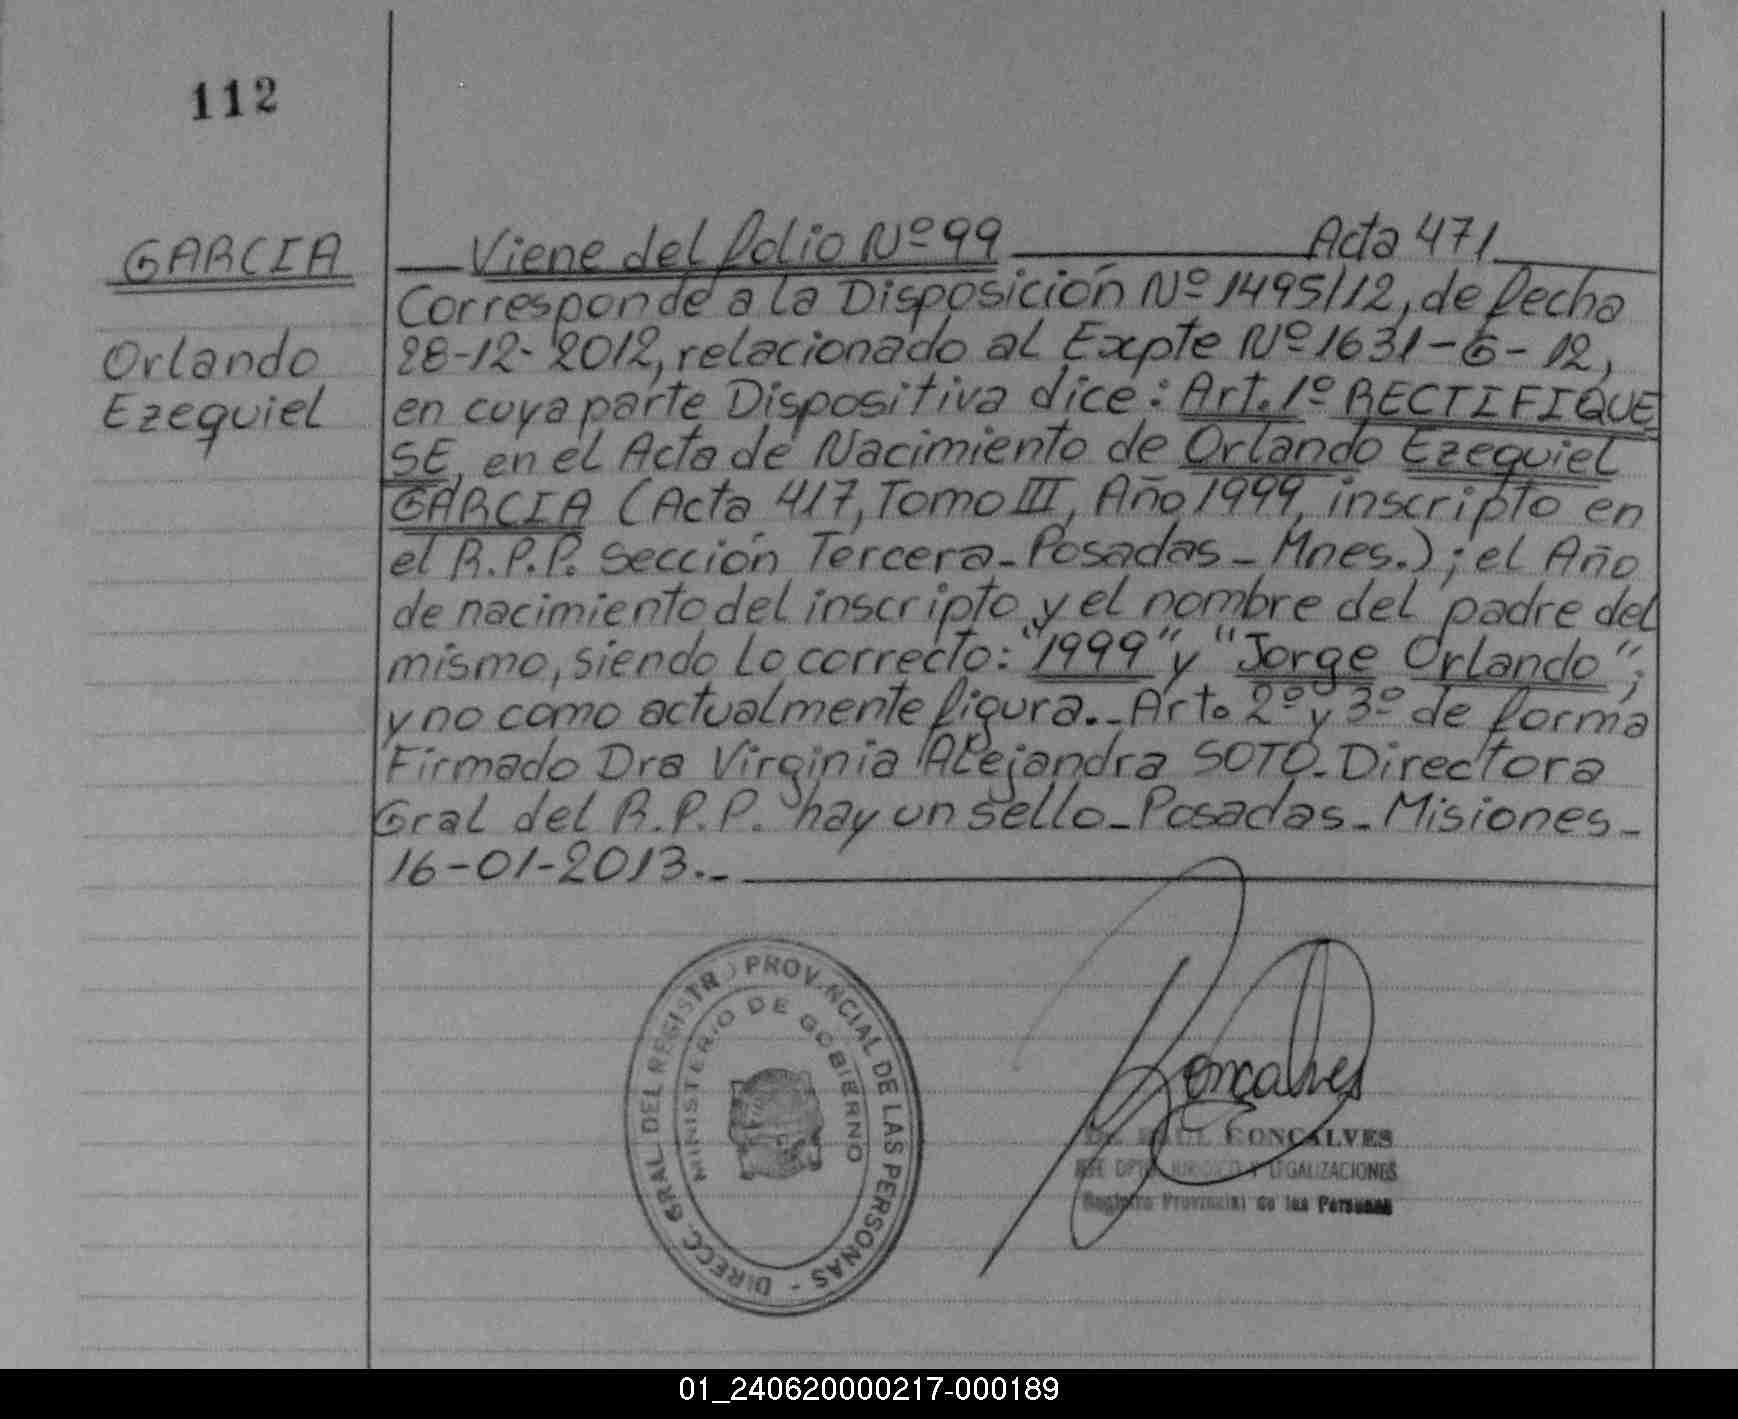 112
GARCIA
Orlando
Ezequiel
Viene del folio Nº 99 Acta 471
Corresponde a la Disposición Nº 1495/12, de fecha
28-12-2012, relacionado al Expte Nº 1631-G-12,
en cuya parte Dispositiva dice: Art. 1º RECTIFIQUE
SE, en el Acta de Nacimiento de Orlando Ezequiel
GARCIA (Acta 417, Tomo III, Año 1999, inscripto en
el R.P.P. Sección Tercera-Posadas-Mnes.); el Año
de nacimiento del inscripto y el nombre del padre del
mismo, siendo lo correcto: "1999" y "Jorge Orlando";
y no como actualmente figura.- Art. 2º y 3º de forma
Firmado Dra Virginia Alejandra SOTO-Directora
Gral del R.P.P. hay un sello-Posadas-Misiones-
16-01-2013.-
DIRECC. GRAL. DEL REGISTRO PROVINCIAL DE LAS PERSONAS -
MINISTERIO DE GOBIERNO
Goncalves
RAUL GONÇALVES
JEFE DPTO. JURIDICO Y LEGALIZACIONES
Registro Provincial de las Personas
01_240620000217-000189